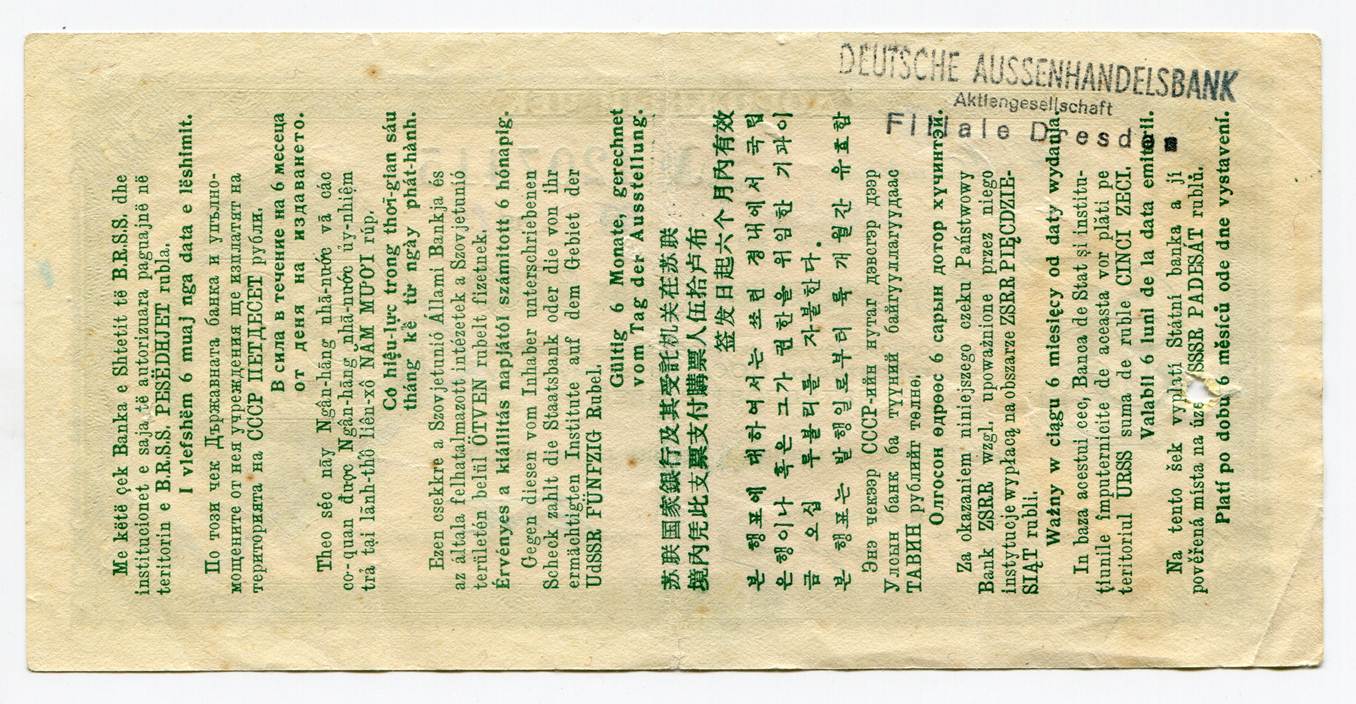 DEUTSCHE AUSSENHANDELSBANK
Aktiengesellschaft
Filiale Dresden
Me këtë çek Banka e Shtetit të B.R.S.S. dhe
institucionet e saja të autorizuara paguajnë në
teritorin e B.R.S.S. PESËDHJET rubla.
I vlefshëm 6 muaj nga data e lëshimit.
По този чек Държавната банка и упълно-
мощените от нея учреждения ще изплатят на
територията на СССР ПЕТДЕСЕТ рубли.
В сила в течение на 6 месеца
от деня на издаването.
Theo séc nãy Ngân-hãng nhã-nước vã các
cơ-quan được Ngân-hãng nhã-nước ủy-nhiệm
trả tại lãnh-thổ liên-xô NĂM MƯƠI rúp.
Có hiệu-lực trong thời-gian sáu
tháng kể từ ngày phát-hành.
Ezen csekkre a Szovjetunió Állami Bankja és
az általa felhatalmazott intézetek a Szovjetunió
területén belül ÖTVEN rubelt fizetnek.
Érvényes a kiállítás napjától számított 6 hónapig.
Gegen diesen vom Inhaber unterschriebenen
Scheck zahlt die Staatsbank oder die von ihr
ermächtigten Institute auf dem Gebiet der
UdSSR FÜNFZIG Rubel.
Gültig 6 Monate, gerechnet
vom Tag der Ausstellung.
苏联国家銀行及其受託机关在苏联
境内凭此支票支付購票人伍拾卢布
签发日起六个月内有效
본 행표에 대하여서는 쏘련 경내에서 국립
은행이나 혹은 그가 권한을 위임한 기관이
금 오십 루블리를 지불한다.
본 행표는 발행일로부터 륙 개월간 유효함
Энэ чекээр СССР-ийн нутаг дэвсгэр дээр
Улсын банк ба түүний байгууллагуудаас
ТАВИН рублийт төлнө.
Олгосон өдрөөс 6 сарын дотор хүчинтэй.
Za okazaniem niniejszego czeku Państwowy
Bank ZSRR wzgl. upoważnione przez niego
instytucje wypłacą na obszarze ZSRR PIĘĆDZIE-
SIĄT rubli.
Ważny w ciągu 6 miesięcy od daty wydania.
In baza acestui cec, Banca de Stat și institu-
țiunile împuternicite de aceasta vor plăti pe
teritoriul URSS suma de ruble CINCI ZECI.
Valabil 6 luni de la data emiterii.
Na tento šek vyplatí Státní banka a jí
pověřená místa na úze SSSR PADESÁT rublů.
Platí po dobu 6 měsíců ode dne vystavení.